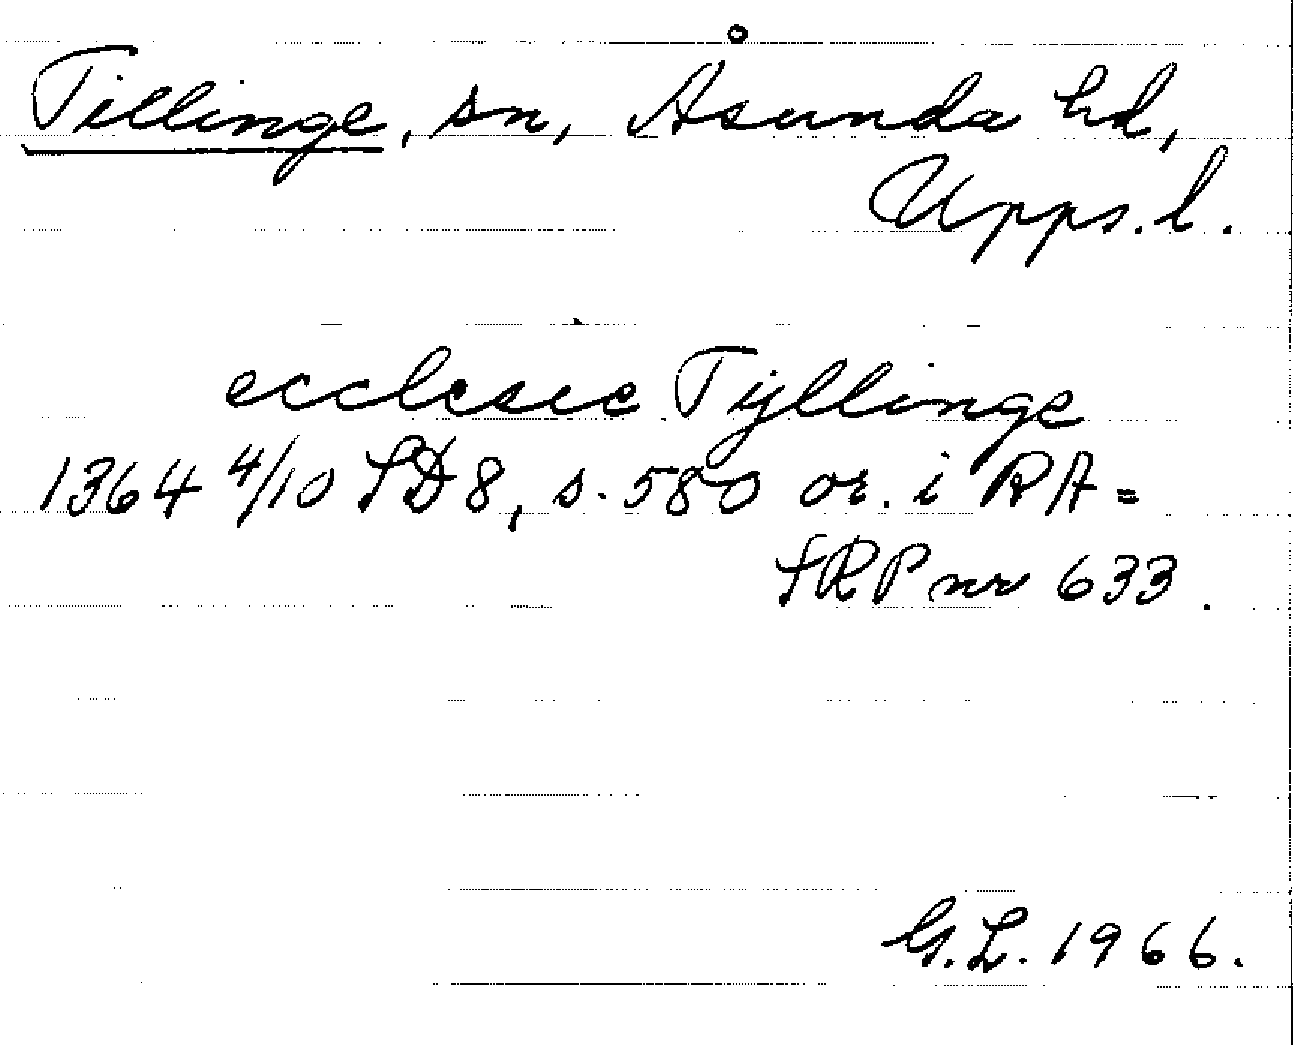 Tillinge, sn, Åsunda hd,
Upps. l.
ecclesie Tÿllinge
1364 4/10 SD 8, s. 580 or. i RA =
SRP nr 633.
G.L. 1966.